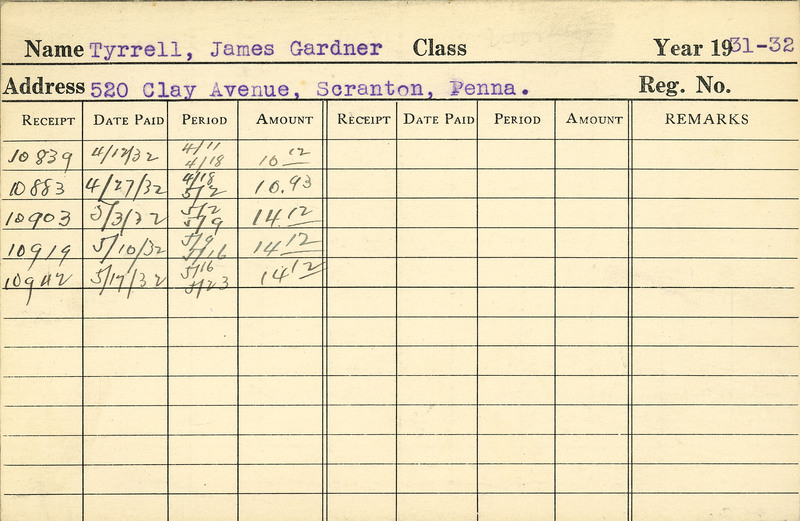 Name Tyrrell, James Gardner Class Year 1931-32
Address 520 Clay Avenue, Scranton, Penna. Reg. No.
RECEIPT DATE PAID PERIOD AMOUNT RECEIPT DATE PAID PERIOD AMOUNT REMARKS
10839 4/12/32 4/11 4/18 10 12
10883 4/27/32 4/18 5/2 10.93
10903 5/3/32 5/2 5/9 14.12
10919 5/10/32 5/9 5/16 14 12
10942 5/17/32 5/16 5/23 14 12